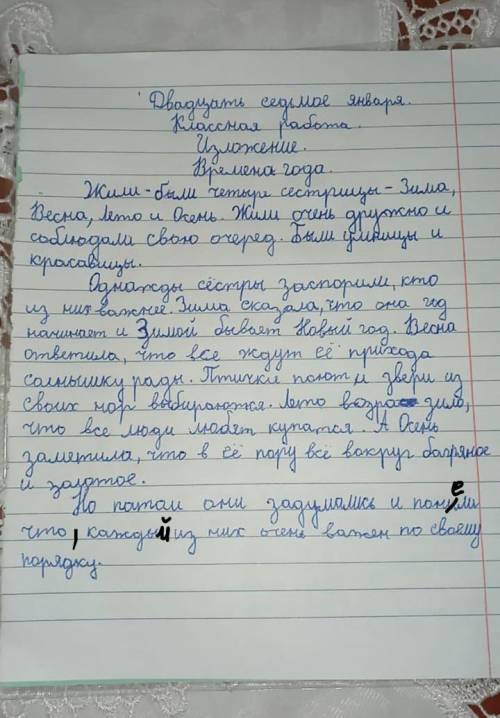 Двадцать седьмое января.
Классная работа.
Изложение.
Времена года.
Жили-были четыре сестрицы - Зима,
Весна, Лето и Осень. Жили очень дружно и
соблюдали свою очеред. Были умницы и
красавицы.
Однажды сёстры заспорили, кто
из них важнее. Зима сказала, что она год
начинает и Зимой бывает Новый год. Весна
ответила, что все ждут её прихода
солнышку рады. Птички поют и звери из
своих нор выбираются. Лето
что все люди любят купатся. А Осень
заметила, что в её пору всё вокруг багряное
и золотое.
Но патом они задумались и
что, каждый из них очень важен по своему
порядку.